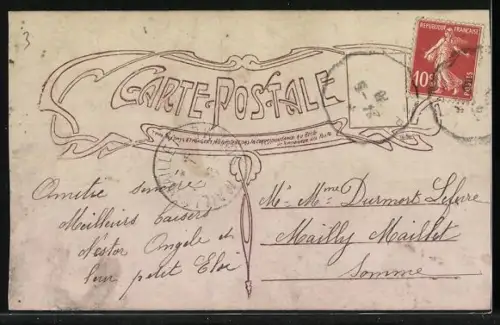 3
CARTE POSTALE
RÉPUBLIQUE FRANÇAISE
10c
POSTES
MAILLY
Amitié sincère
Meilleurs baisers
Nestor Angèle et
leur petit Eloi
Mr Mme Durmort Lefevre
Mailly Maillet
Somme